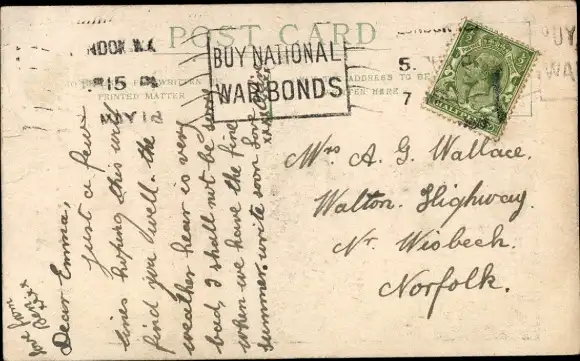 POST CARD
LONDON. W.1.
5.15 PM
MAY 12
BUY NATIONAL
WAR BONDS
LONDON
5.
7
BUY
WAR
WRITTEN
PRINTED MATTER
ADDRESS TO BE
WRITTEN HERE
Dear Emma,
Just a few
lines hoping this will
find you well. the
weather hear is very
bad, I shall not be sorry
when we have the fine
summer. write soon Love
Mrs A. G. Wallace.
Walton. Highway.
Nr. Wisbech.
Norfolk.